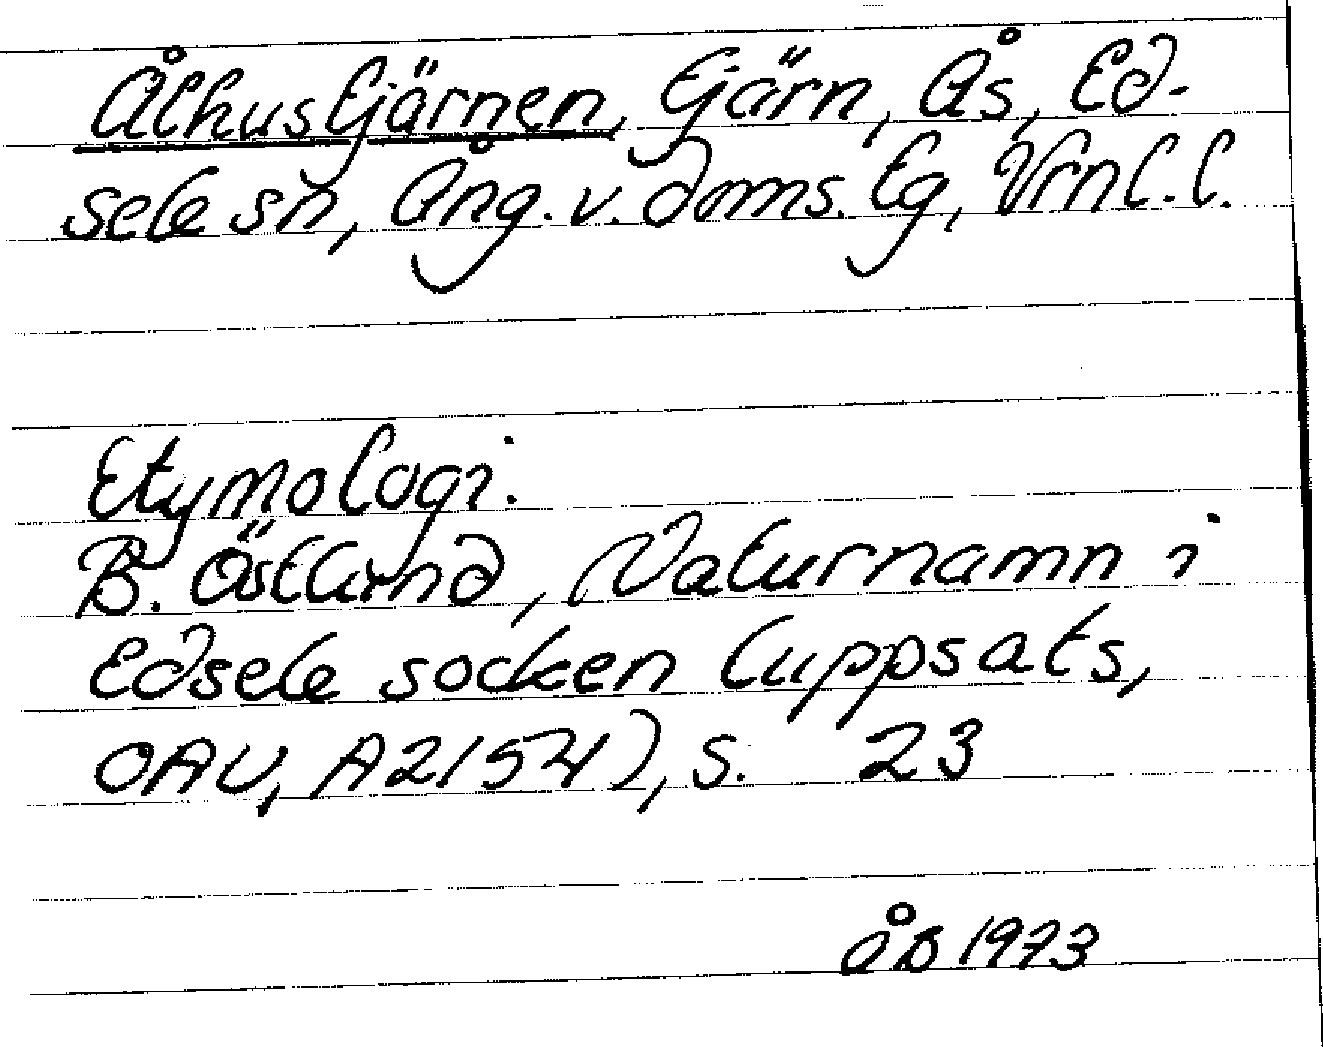 Ålhustjärnen, tjärn, Ås, Ed-
sele sn, Ång. v. doms. tg, Vrnl. l.
Etymologi.
B. Östlund, Naturnamn i
Edsele socken (uppsats,
OAU, A2154), s. 23
åB 1973